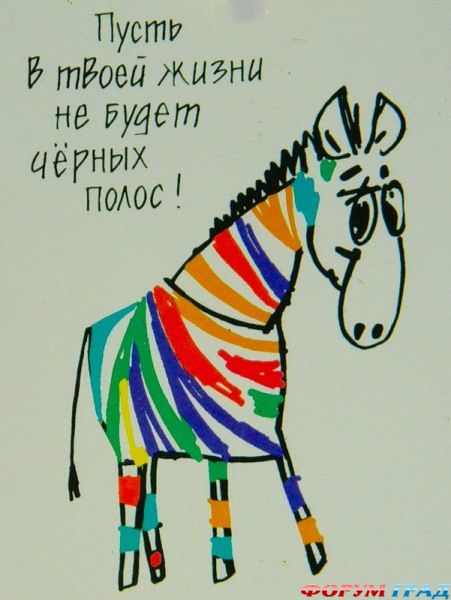 Пусть
в твоей жизни
не будет
чёрных
полос!
ФОРУМ ГРАД